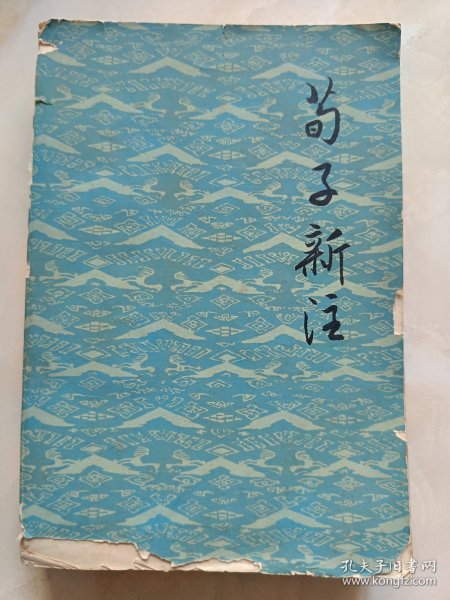 荀子新注
孔夫子旧书网
www.kongfz.com